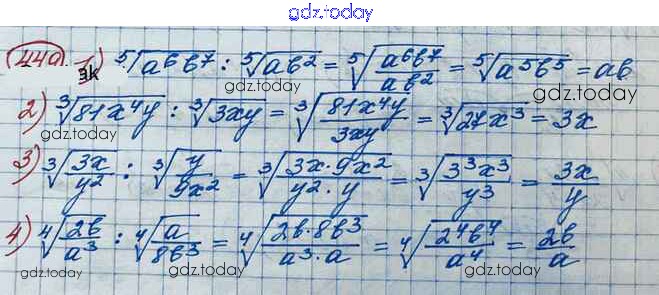 gdz.today
440. 1) ⁵√(a⁶b⁷) : ⁵√(ab²) = ⁵√(a⁶b⁷/ab²) = ⁵√(a⁵b⁵) = ab
gdz.today gdz.today
2) ³√(81x⁴y) : ³√(3xy) = ³√(81x⁴y/3xy) = ³√(27x³) = 3x
3) ³√(3x/y²) : ³√(y/9x²) = ³√(3x·9x²/y²·y) = ³√(3³x³/y³) = 3x/y
gdz.today gdz.today
4) ⁴√(2b/a³) : ⁴√(a/8b³) = ⁴√(2b·8b³/a³·a) = ⁴√(2⁴b⁴/a⁴) = 2b/a
gdz.today gdz.today gdz.today